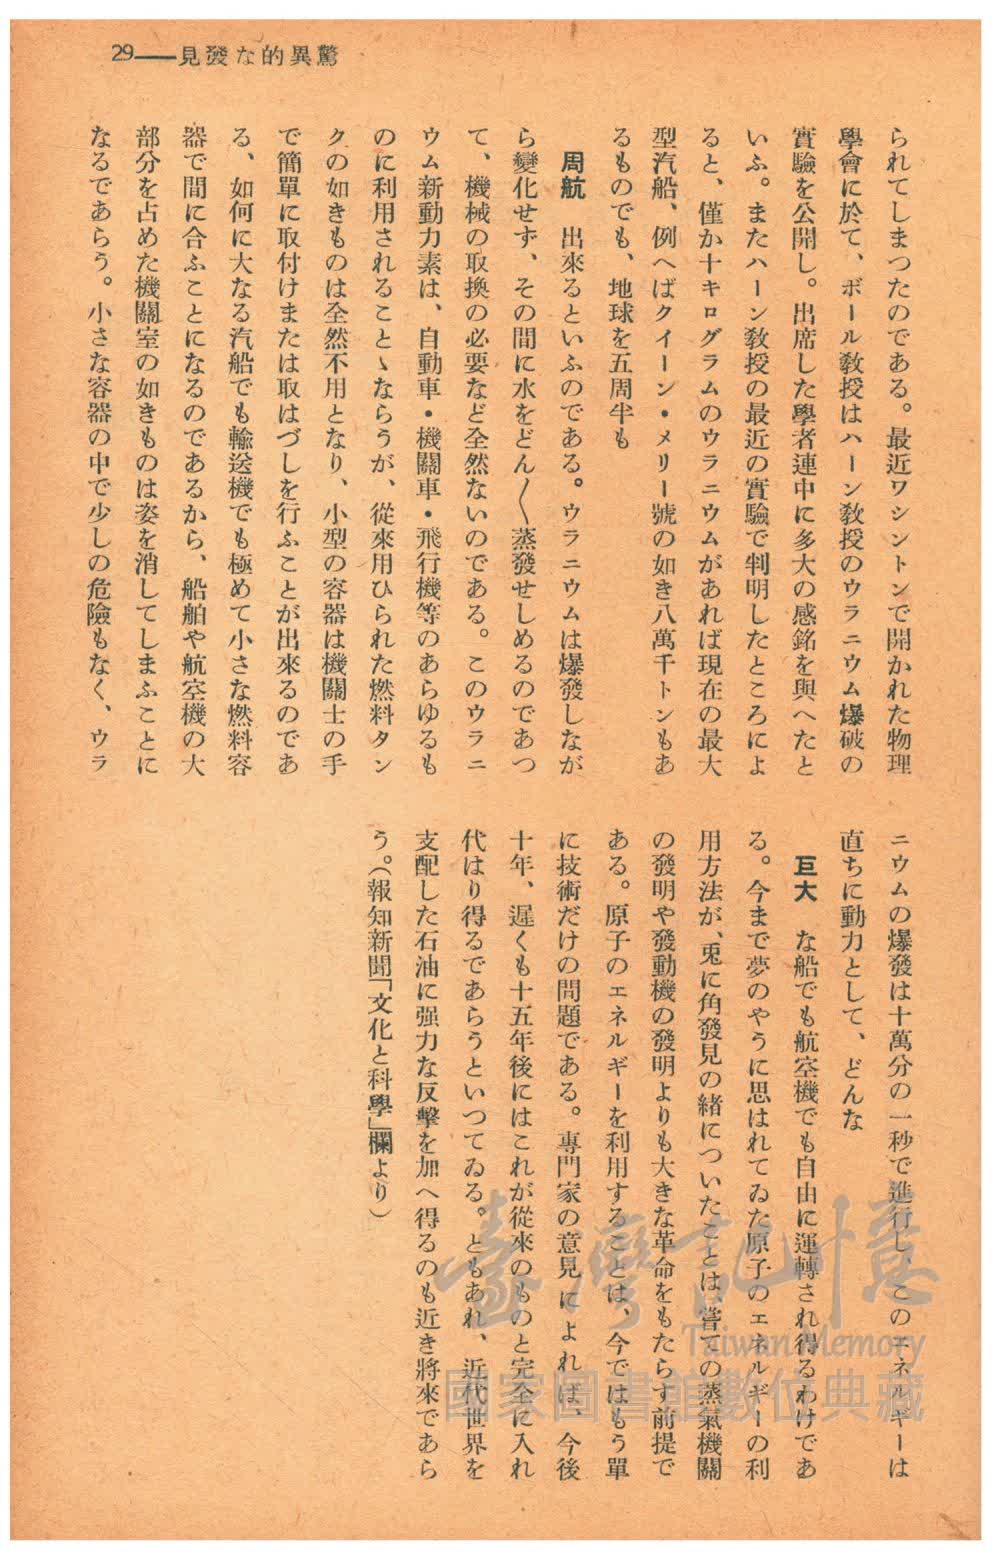 驚異的な發見——29
られてしまつたのである。最近ワシントンで開かれた物理
學會に於て、ボール敎授はハーン敎授のウラニウム爆破の
實驗を公開し。出席した學者連中に多大の感銘を與へたと
いふ。またハーン敎授の最近の實驗で判明したところによ
ると、僅か十キログラムのウラニウムがあれば現在の最大
型汽船、例へばクイーン・メリー號の如き八萬千トンもあ
るものでも、地球を五周半も
周航 出來るといふのである。ウラニウムは爆發しなが
ら變化せず、その間に水をどん〳〵蒸發せしめるのであつ
て、機械の取換の必要など全然ないのである。このウラニ
ウム新動力素は、自動車・機關車・飛行機等のあらゆるも
のに利用されることゝならうが、從來用ひられた燃料タン
クの如きものは全然不用となり、小型の容器は機關士の手
で簡單に取付けまたは取はづしを行ふことが出來るのであ
る、如何に大なる汽船でも輸送機でも極めて小さな燃料容
器で間に合ふことになるのであるから、船舶や航空機の大
部分を占めた機關室の如きものは姿を消してしまふことに
なるであらう。小さな容器の中で少しの危險もなく、ウラ
ニウムの爆發は十萬分の一秒で進行し、このエネルギーは
直ちに動力として、どんな
巨大 な船でも航空機でも自由に運轉され得るわけであ
る。今まで夢のやうに思はれてゐた原子のエネルギーの利
用方法が、兎に角發見の緒についたことは、嘗ての蒸氣機關
の發明や發動機の發明よりも大きな革命をもたらす前提で
ある。原子のエネルギーを利用することは、今ではもう單
に技術だけの問題である。專門家の意見によれば、今後
十年、遲くも十五年後にはこれが從來のものと完全に入れ
代はり得るであらうといつてゐる。ともあれ、近代世界を
支配した石油に强力な反擊を加へ得るのも近き將來であら
う。(報知新聞「文化と科學」欄より)
臺灣記憶
Taiwan Memory
國家圖書館數位典藏